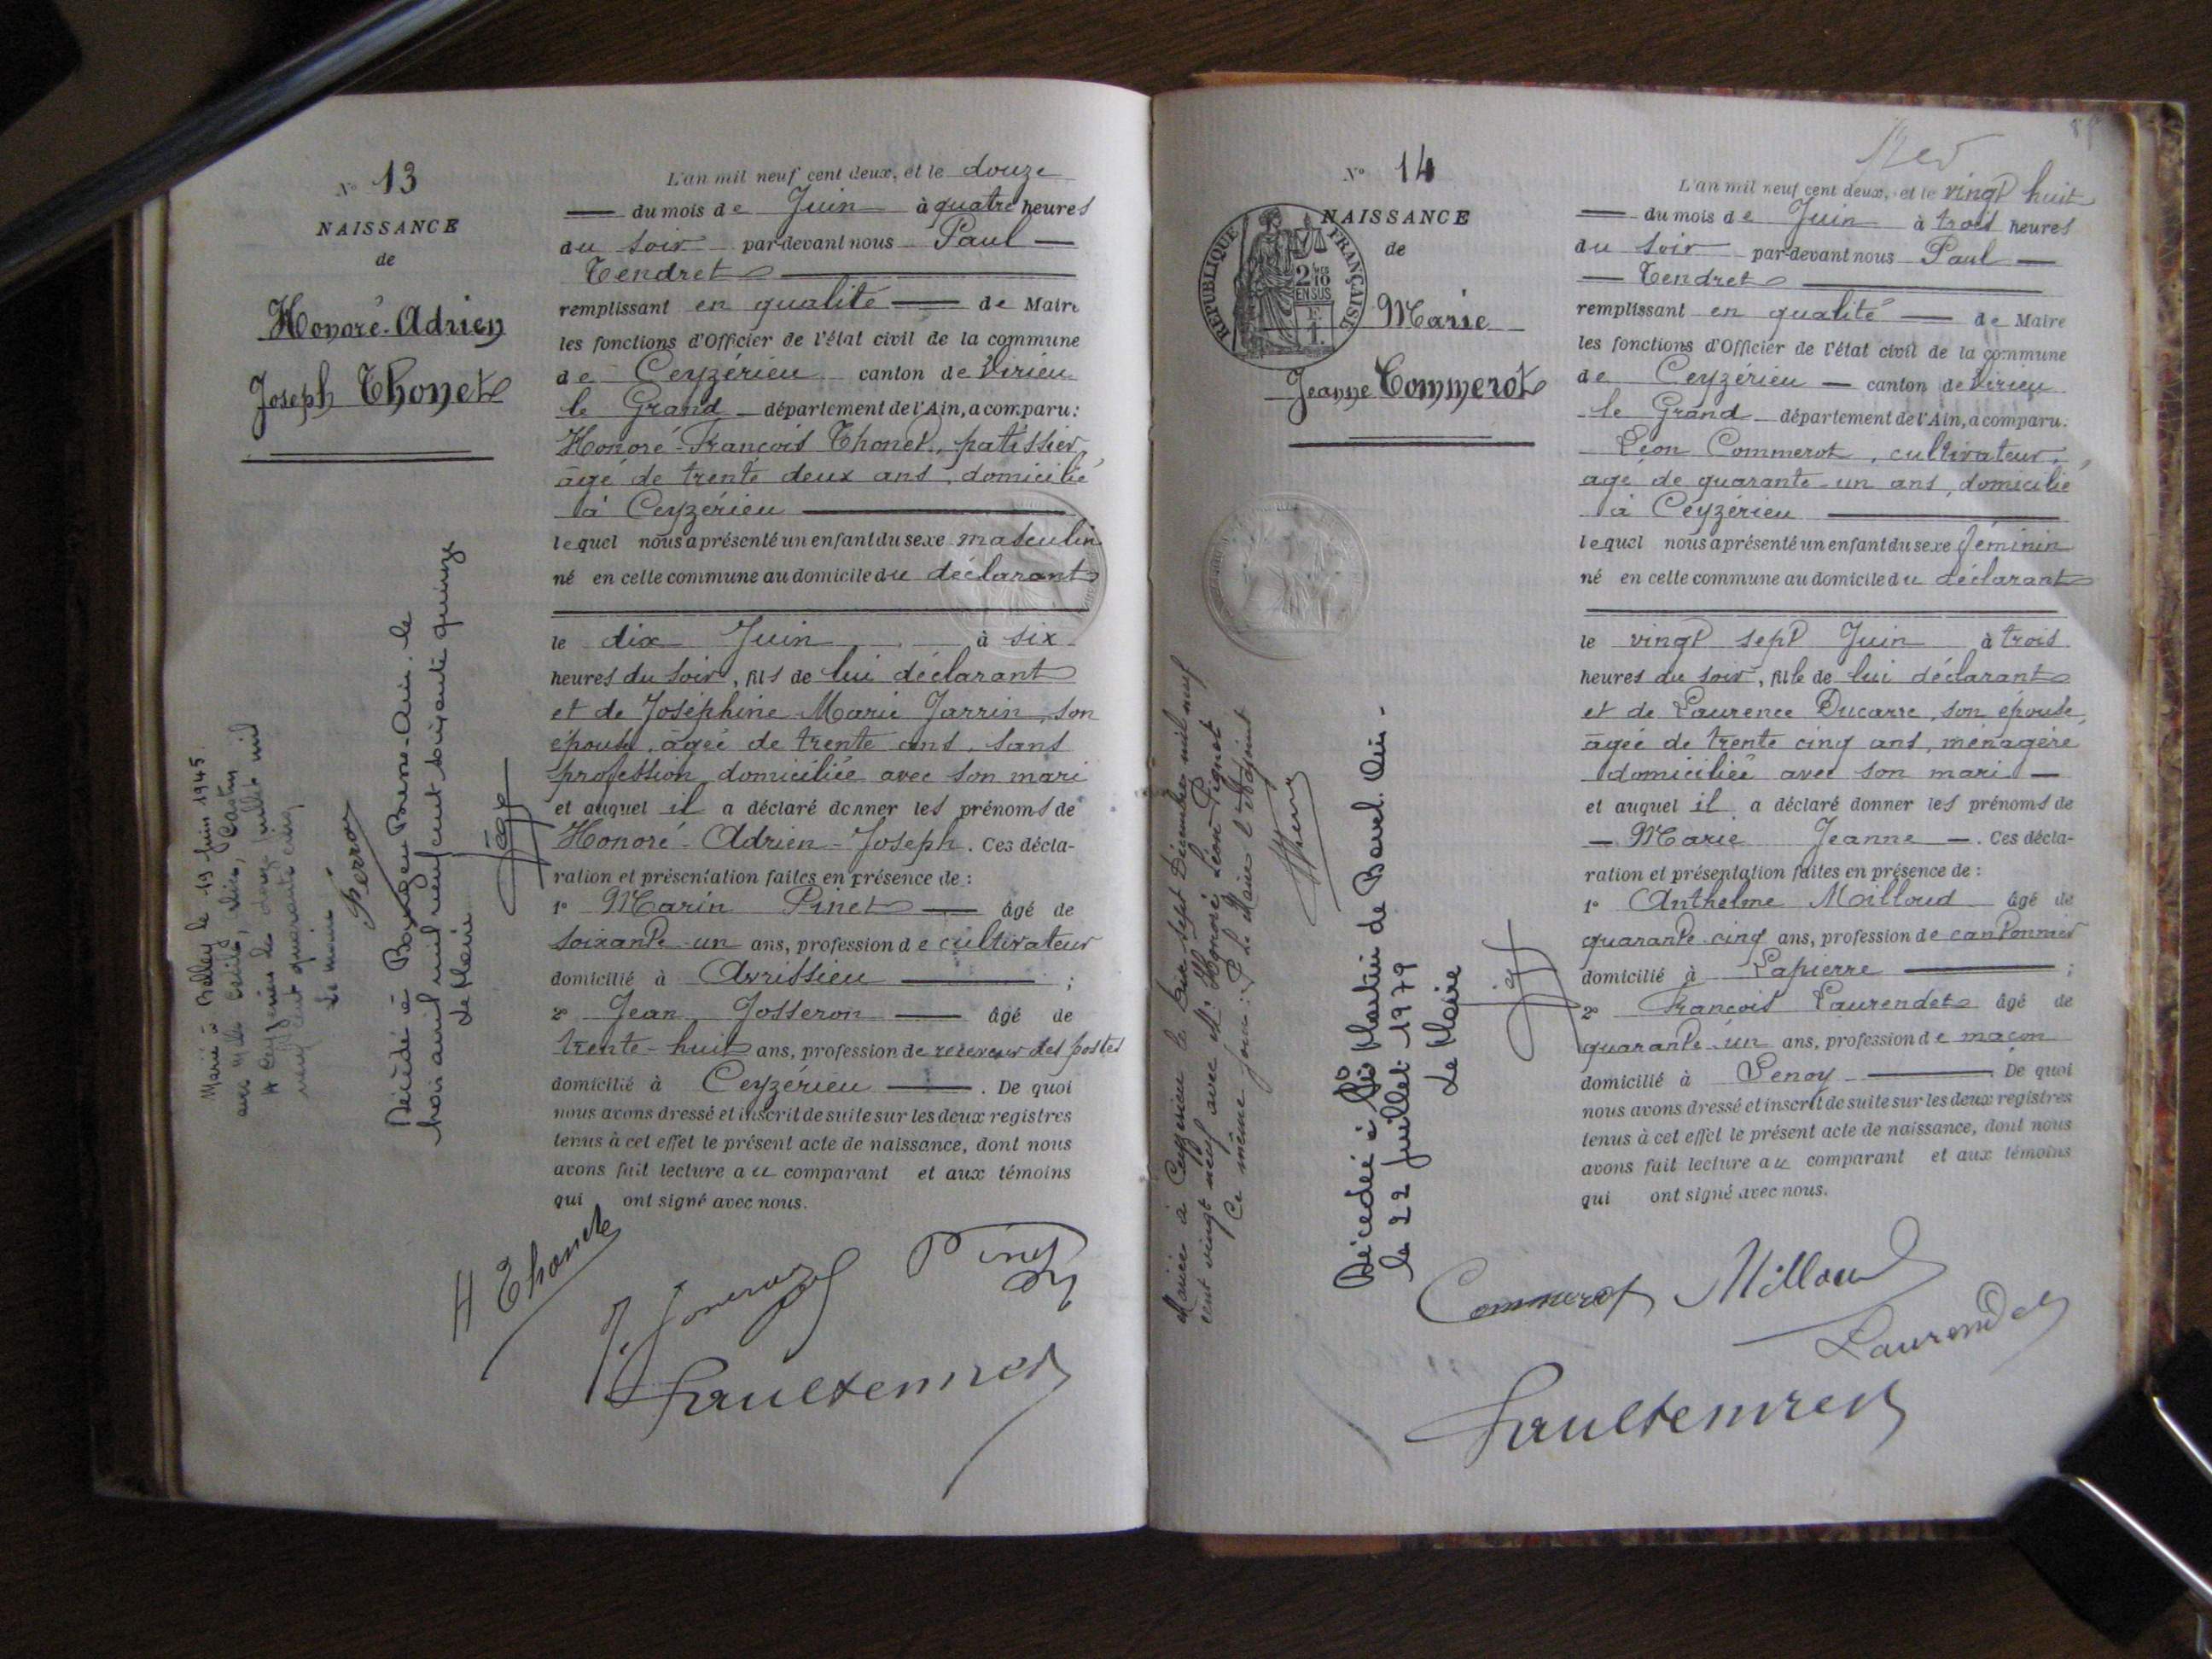 N° 13
NAISSANCE
de
Honoré-Adrien
Joseph Thonet
L'an mil neuf cent deux, et le douze
du mois de Juin à quatre heures
du soir par-devant nous Paul
Tendret
remplissant en qualité de Maire
les fonctions d'Officier de l'état civil de la commune
de Ceyzérieu canton de Virieu
le Grand département de l'Ain, a comparu:
Honoré-François Thonet, patissier
âgé de trente deux ans, domicilié
à Ceyzérieu
lequel nous a présenté un enfant du sexe masculin
né en cette commune au domicile du déclarant
le dix Juin à six
heures du soir, fils de lui déclarant
et de Joséphine Marie Jarrin, son
épouse, âgée de trente ans, sans
profession, domiciliée avec son mari
et auquel il a déclaré donner les prénoms de
Honoré-Adrien-Joseph. Ces décla-
ration et présentation faites en présence de:
1° Marin Pinet âgé de
soixante-un ans, profession de cultivateur
domicilié à Avrissieu ;
2° Jean Josseron âgé de
trente-huit ans, profession de receveur des postes
domicilié à Ceyzérieu. De quoi
nous avons dressé et inscrit de suite sur les deux registres
tenus à cet effet le présent acte de naissance, dont nous
avons fait lecture au comparant et aux témoins
qui ont signé avec nous.
Marié à Belley le 19 juin 1945
Le maire
Décédé à Bourg en Bresse-Ain. le
trois avril mil neuf cent soixante quinze
Le Maire
H Thonet
Pinet
Paul Tendret
N° 14
NAISSANCE
de
Marie
Jeanne Commerot
RÉPUBLIQUE FRANÇAISE
L'an mil neuf cent deux, et le vingt huit
du mois de Juin à trois heures
du soir par-devant nous Paul
Tendret
remplissant en qualité de Maire
les fonctions d'Officier de l'état civil de la commune
de Ceyzérieu canton de Virieu
le Grand département de l'Ain, a comparu:
Léon Commerot, cultivateur,
âgé de quarante-un ans, domicilié
à Ceyzérieu
lequel nous a présenté un enfant du sexe féminin
né en cette commune au domicile du déclarant
le vingt sept Juin à trois
heures du soir, fille de lui déclarant
et de Laurence Ducarre, son épouse,
âgée de trente cinq ans, ménagère
domiciliée avec son mari
et auquel il a déclaré donner les prénoms de
Marie Jeanne. Ces décla-
ration et présentation faites en présence de:
1° Anthelme Milloud âgé de
quarante-cinq ans, profession de cantonnier
domicilié à Lapierre ;
2° François Laurendet âgé de
quarante-un ans, profession de maçon
domicilié à Senoy De quoi
nous avons dressé et inscrit de suite sur les deux registres
tenus à cet effet le présent acte de naissance, dont nous
avons fait lecture au comparant et aux témoins
qui ont signé avec nous.
Mariée à Ceyzérieu le dix-sept Décembre mil neuf
cent vingt neuf avec Mr. Honoré Léon Piquet
Ce même jour. P. le Maire L'Adjoint
Décédée à St Martin de Bavel. Ain.
le 22 juillet 1979
Le Maire
Commerot Milloud
Laurendet
Paul Tendret